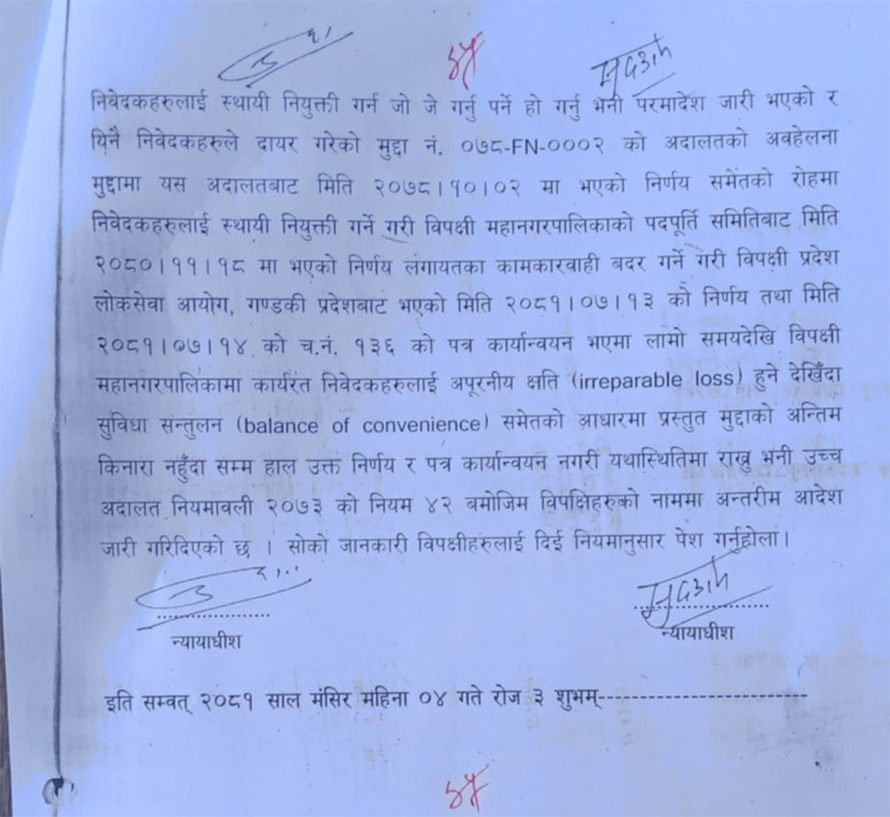 निवेदकहरुलाई स्थायी नियुक्ती गर्न जो जे गर्नु पर्ने हो गर्नु भनी परमादेश जारी भएको र
यिनै निवेदकहरुले दायर गरेको मुद्दा नं. ०७८-FN-०००२ को अदालतको अवहेलना
मुद्दामा यस अदालतबाट मिति २०७८।१०।०२ मा भएको निर्णय समेतको रोहमा
निवेदकहरुलाई स्थायी नियुक्ती गर्ने गरी विपक्षी महानगरपालिकाको पदपूर्ति समितिबाट मिति
२०८०।११।१८ मा भएको निर्णय लगायतका कामकारवाही बदर गर्ने गरी विपक्षी प्रदेश
लोकसेवा आयोग, गण्डकी प्रदेशबाट भएको मिति २०८१।०७।१३ को निर्णय तथा मिति
२०८१।०७।१४ को च.नं. १३६ को पत्र कार्यान्वयन भएमा लामो समयदेखि विपक्षी
महानगरपालिकामा कार्यरत निवेदकहरुलाई अपूरनीय क्षति (irreparable loss) हुने देखिँदा
सुविधा सन्तुलन (balance of convenience) समेतको आधारमा प्रस्तुत मुद्दाको अन्तिम
किनारा नहुँदा सम्म हाल उक्त निर्णय र पत्र कार्यान्वयन नगरी यथास्थितिमा राख्नु भनी उच्च
अदालत नियमावली २०७३ को नियम ४२ बमोजिम विपक्षिहरुको नाममा अन्तरीम आदेश
जारी गरिदिएको छ । सोको जानकारी विपक्षीहरुलाई दिई नियमानुसार पेश गर्नुहोला।
न्यायाधीश न्यायाधीश
इति सम्वत् २०८१ साल मंसिर महिना ०४ गते रोज ३ शुभम्-----------------------------